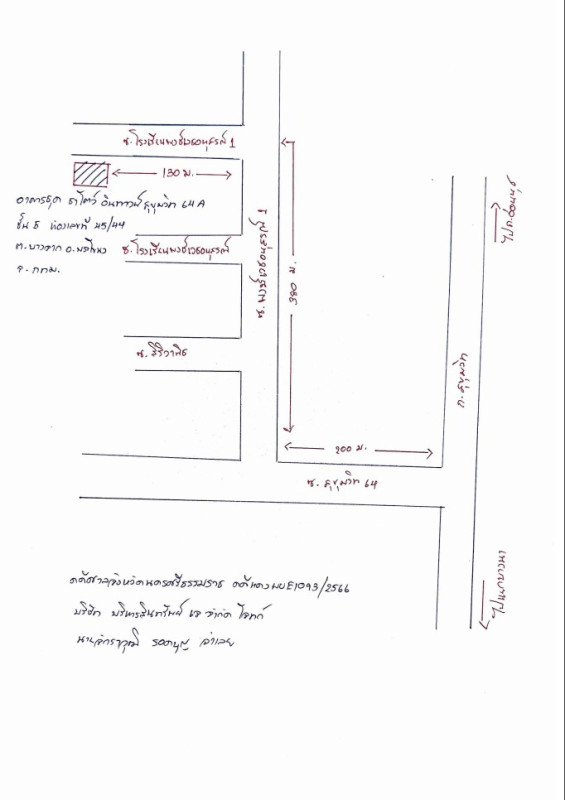 ซ.โรงเรียนพงษ์เวชอนุสรณ์ 1
130 ม.
อาคารชุด ชาโตว์ อินทาวน์ สุขุมวิท 64 A
ชั้น 5 ห้องเลขที่ 45/44
ต.บางจาก อ.พระโขนง
จ.กทม.
ซ.โรงเรียนพงษ์เวชอนุสรณ์
ซ.สิริวานิช
380 ม.
200 ม.
ซ.สุขุมวิท 64
ถ.สุขุมวิท
ไปถ.อ่อนนุช
ไปแยกบางนา
คดีศาลจังหวัดนครศรีธรรมราช คดีแดง ผบE1093/2566
บริษัท บริหารสินทรัพย์ เจ จำกัด โจทก์
นายจักรวุฒิ รอดบุญ จำเลย